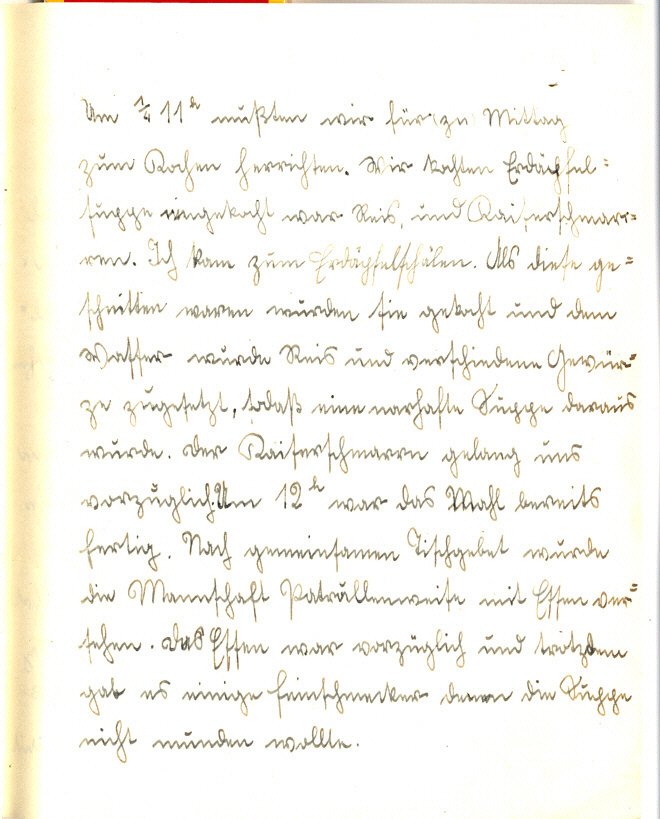 Um 1/4 11h mußten wir für (zu) Mittag
zum Kochen herrichten. Wir kochten Erdäpfel=
suppe eingekocht war Reis, und Kaiserschmar=
ren. Ich kam zum Erdäpfelschälen. Als diese ge=
schnitten waren wurden sie gekocht und dem
Wasser wurde Reis und verschiedene Gewür=
ze zugesetzt, sodaß eine narhafte Suppe daraus
wurde. Der Kaiserschmarrn gelang uns
vorzüglich. Um 12h war das Mahl bereits
fertig. Nach gemeinsamen Tischgebet wurde
die Mannschaft Patrullenweise mit Essen ver=
sehen. Das Essen war vorzüglich und trotzdem
gab es einige Feinschmecker denen die Suppe
nicht munden wollte.